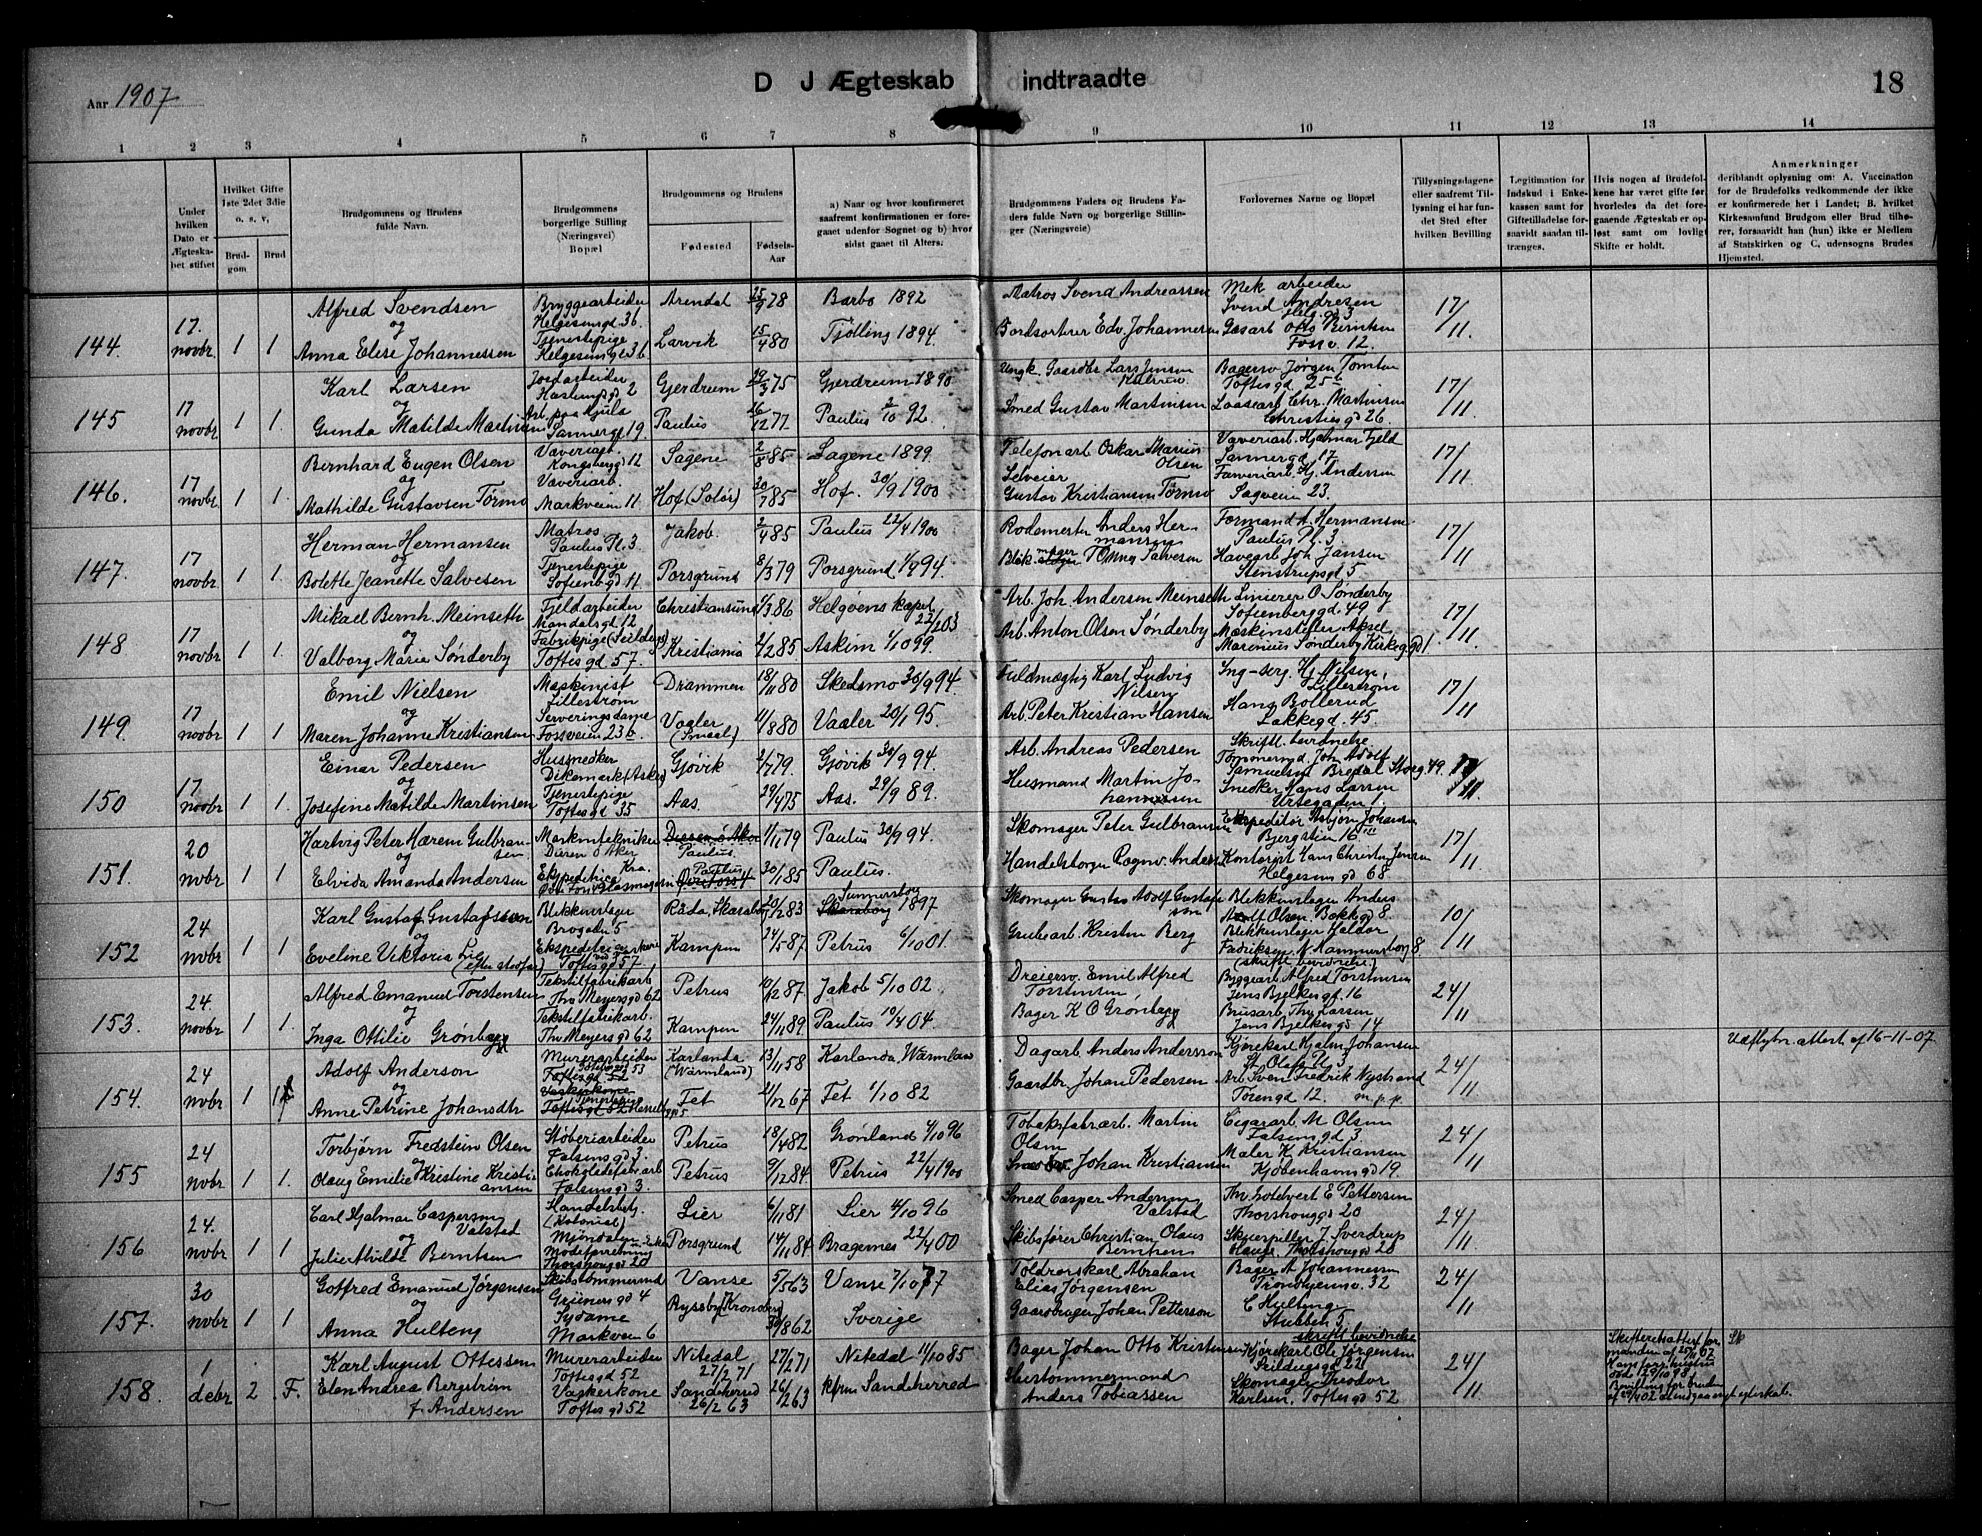 Aar 1907
D J Ægteskab indtraadte
18
1 2 3 4 5 6 7 8 9 10 11 12 13 14
Under hvilken Dato er Ægteskabet stiftet
Hvilket Gifte 1ste 2det 3die o. s. v,
Brudgom
Brud
Brudgommens og Brudens fulde Navn.
Brudgommens borgerlige Stilling (Næringsvei) Bopæl
Brudgommens og Brudens
Fødested
Fødsels-Aar
a) Naar og hvor konfirmeret saafremt konfirmationen er foregaaet udenfor Sognet og b) hvor sidst gaaet til Alters.
Brudgommens Faders og Brudens Faders fulde Navn og borgerlige Stillinger (Næringsveie)
Forlovernes Navne og Bopæl
Tillysningsdagene eller saafremt Tillysning ei har fundet Sted efter hvilken Bevilling
Legitimation for Indskud i Enkekassen samt for Giftetilladelse forsaavidt saadan tiltrænges.
Hvis nogen af Brudefolkene har været gifte før, hvorledes da det foregaaende Ægteskab er opløst samt om lovligt Skifte er holdt.
Anmerkninger
deriblandt oplysning om: A. Vaccination for de Brudefolks vedkommende der ikke er konfirmerede her i Landet; B. hvilket Kirkesamfund Brudgom eller Brud tilhører, forsaavidt han (hun) ikke er Medlem af Statskirken og C, udensogns Brudes Hjemsted.
144. 17. novbr 1 1
Alfred Svendsen og Anna Elise Johannessen
Bryggearbeider Helgesensgd. 36 Tjenestepige Helgesensgd 36
Arendal 25/9 78 Barbo 1892
Larvik 15/4 80 Tjølling 1894
Matros Svend Andreassen
Bordsorterer Edv. Johannesen
Mek arbeider Svend Andresen Helg. gd 3
Gasarb Otto Berntsen Fossv. 12.
17/11
145 17 novbr 1 1.
Karl Larsen og Gunda Matilde Martinsen
Jordarbeider Haslumsgd 2 Arb. paa Hjula Sannergd 19.
Gjerdrum 29/3 75 Gjerdrum 1890
Paulus 26/12 77 Paulus 2/10 92.
Ungk. Gaardbr Lars Jensen
Smed Gustav Martinsen
Bagersv Jørgen Tomten Toftesgd 25
Christiesgd 26.
17/11
146. 17 novbr 1 1.
Bernhard Eugen Olsen og Mathilde Gustavsen Tørmo
Væveriarb. Kongsbergd 12 Væveriarb. Markveien 11
Sagene 2/8 85 Sagene 1899.
Hof (Solør) 20/7 85 Hof. 30/9 1900
Telefonarb Oskar Marius Olsen
Selveier Gustav Kristiansen Tørmo
Væveriarb. Hjalmar Fjeld Sannergd 17
Farveriarb. Hj. Andersen Sagveien 23.
17/11
147. 17 novbr 1 1.
Herman Hermansen og Bolette Jeanette Salvesen
Matros Paulus Pl. 3 Tjenestepige Sofienbgd 11
Jakob. 2/4 85 Paulus 22/4 1900
Porsgrund 8/3 79 Porsgrund 94.
Rodemester Anders Hermansen
Formand A. Hermansen Paulus Pl. 3
Havearb Joh Jansen Stenstrupsgd 5
17/11
148 17 novbr 1 1.
Mikael Bernh. Meinseth og Valborg Marie Sønderby
Fjeldarbeider Mandalsgd 12 Fabrikpige (Seildugs) Toftesgd 57.
Christiansund 1/3 86 Helgøens kapel 22/2 03
Kristiania 2/2 85 Askim 1/10 99.
Arb. Joh. Andersen Meinseth
Arb. Anton Olsen Sønderby
Linierer O. Sønderby Sofienberggd 49
Marinius Sønderby Kirkeggd 1
17/11
149. 17 novbr 1 1
Emil Nielsen og Maren Johanne Kristiansen
Maskinist Lillestrøm Serveringsdame Fossveien 23 b.
Drammen 18/11 80 Skedsmo 30/9 94.
Vaaler (Smaal) 11/8 80 Vaaler 20/1 95.
Fuldmægtig Karl Ludvig Nilsen
Arb. Peter Kristian Hansen
Hj. Nilsen, Lillestrøm
Hans Bollerud Lakkegd. 45.
Skriftl. bevidnelse
17/11
150 17 novbr 1 1.
Einar Pedersen og Josefine Matilde Martinsen
Hussnedker Dikemark (Asker) Tjenestepige Toftesgd 35
Gjøvik 2/7 79. Gjøvik 30/9 94.
Aas. 29/4 75 Aas. 29/9 89.
Arb. Andreas Pedersen
Husmand Martin Johannesen
Tømmermd. Joh Adolf Samuelsen Bredal Storg. 49.
Snedker Hans Larsen Urtegaden 1.
17/11
151. 20 nvbr 1 1
Hartvig Peter Hærem Gulbransen og Elvida Amanda Andersen
Paulus. 1/11 79 Paulus 30/9 94.
Paulus 30/1 85 Paulus.
Skomager Peter Gulbransen
Expeditør Asbjørn Johansen Bergstien 16 III
Kontorist Hans Christen Jensen Helgesensgd 68
17/11
152 24 nvbr 1 1
Karl Gustaf Gustafsson og Eveline Viktoria Lie
Blikkenslager Brogaden 5 Toftesgd 57
Råda, Skaraborg 20/12 83 1897
Kampen 24/5 87 Petrus 6/10 01.
Skomager Gustav Adolf Gustafsson
Grubearb. Kristen Berg
Blikkenslager Anders Adolf Olsen. Bokkgd 8.
Blikkenslager Haldor Fadriksen N Hammersborg 8 (skriftl bevidnelse.)
10/11
153. 24. novbr 1 1.
Alfred Emanuel Torstensen og Inga Ottilie Grønberg
Tekstilfabrikarb Thv Meyersgd 62 Tekstilfabrikarb. Thv Meyersgd 62
Petrus 10/12 87 Jakob 5/10 02.
Kampen 24/11 89 Paulus 10/4 04.
Dreiersv. Emil Alfred Torstensen
Bager K O Grønberg
Byggearb Alfred Torstensen Jens Bjelkesgt. 16
Brusarb Thv Larsen Jens Bjelkesgd 14
24/11
154. 24 nvbr 1 1
Adolf Anderson og Anne Petrine Johansdtr
Murerarbeider Toftesgd 52
Karlanda (Wärmland) 13/11 58 Karlanda, Wärmland
Fet 21/12 67 Fet 1/10 82
Dagarb. Anders Andersson
Gaardbr Johan Pedersen
Kjørekarl Hjalm Johansen St. Olafs Pl 3
Arb Sven Fredrik Nystrand Torengd 12. m.p.p.
24/11
Udflytn.attest af 16-11-07.
155 24 nvbr 1 1.
Torbjørn Fredstein Olsen og Olaug Emilie Kristine Kristiansen
Støberiarbeider Falsensgd 3. Chokoladefabr.arb Falsensgd 3.
Petrus 18/4 82 Grønland 4/10 96
Petrus 9/12 84 Petrus 22/4 1900
Tobaksfabrarb. Martin Olsen
Johan Kristiansen
Cigararb. M Olsen Falsensgd 3.
Maler K Kristiansen Kjøbenhavnsgd 19.
24/11
156 24. nvbr 1 1
Carl Hjalmar Caspersen Valstad og Julie Alvilde Berntsen
Handelsbetj. (Kolonial) Mjøndalen Modeforretning Thorshouggd 20
Lier 6/11 81 Lier 4/10 96
Porsgrund 14/11 84 Bragernes 22/4 00
Smed Casper Andersen Valstad
Skibsfører Christian Olaus Berntsen
E Pettersen Thorshouggd 20
Skuespiller J. Sverdrup Thorshouggd 20
24/11
157. 30 nvbr 1 1
Gotfred Emanuel Jørgensen og Anna Hulteng
Skibstømmermd Grünersgd 4 Sydame Markveien 6
Vanse 5/10 63 Vanse 7/10 77
Ryssby (Kronoberg) 30/8 62 Sverige
Toldrorskarl Abraham Elias Jørgensen
Gaardbruger Johan Petterson
Bager A Johannesen Trondhjemsv. 32
C Hulting Stubben 5 skriftl bevidnelse
24/11
158. 1 debr 2. F.
Karl August Ottessen
Elen Andrea Bergstrøm f. Andersen
Murerarbeider Toftesgd 52 Vaskerkone Toftesgd 52
Nitedal 27/2 71 27/2 71 Nitedal 11/10 85
Sandeherred 26/2 63 26/12 63 Sandeherred
Bager Johan Otto Kristensen
Anders Tobiassen
Kjørekarl Ole Jørgensen Seildugsgd 22
Skomager Teodor Karlsen. Toftesgd 52
24/11